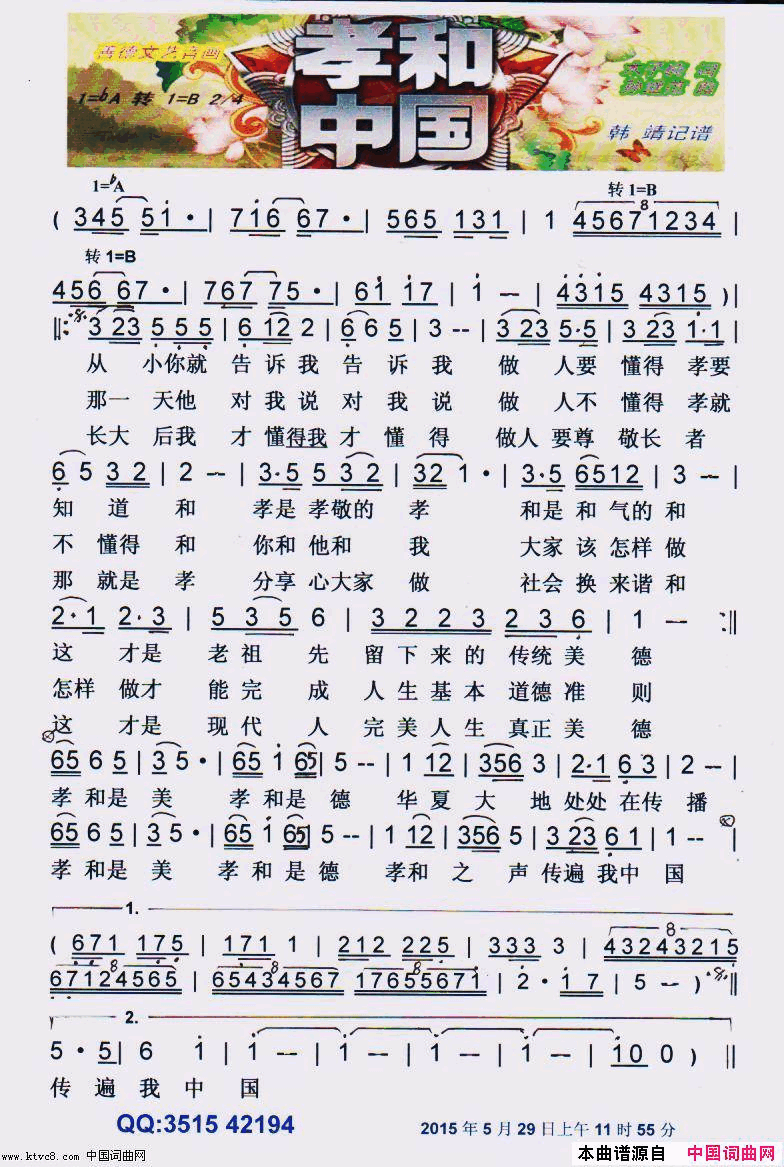 善德文艺音画
孝和
中国
1=ᵇA 转 1=B 2/4
词
曲
韩 靖记谱
1=ᵇA 转1=B
( 345 51· | 716 67· | 565 131 | 1 45671234 |
转1=B
456 67· | 767 75· | 61 17 | 1 – | 4315 4315 )|
‖: 3 23 5 5 5 | 6 12 2 | 6 6 5 | 3 -- | 3 23 5·5 | 3 23 1·1 |
从 小你就 告诉我 告诉我 做 人要 懂得 孝要
那一 天他 对我说 对我说 做 人不 懂得 孝就
长大 后我 才懂得我才懂得 做人 要尊 敬长者
6 5 32 | 2 -- | 3·5 5 32 | 32 1· | 3·5 6512 | 3 -- |
知道 和 孝是孝敬的 孝 和是 和气的 和
不懂得 和 你和他和 我 大家 该怎样 做
那就是 孝 分享心大家 做 社会 换来谐 和
2·1 2·3 | 5 35 6 | 3 2 2 3 2 3 6 | 1 -- :‖
这 才是 老祖 先 留下来的 传统美 德
怎样 做才 能完 成 人生基本 道德准 则
这 才是 现代 人 完美人生 真正美 德
65 6 5 | 3 5· | 65 1 65 | 5 -- | 1 12 | 356 3 | 2·1 6 3 | 2 -- |
孝和是 美 孝和是 德 华夏 大 地处处 在传 播
65 6 5 | 3 5· | 65 1 65 | 5 -- | 1 12 | 356 5 | 3 23 6 1 | 1 -- |
孝和是 美 孝和是 德 孝和 之 声传遍 我中 国
1.
( 671 175 | 171 1 | 212 225 | 333 3 | 43243215
67124565 | 65434567 17655671 | 2· 17 | 5 -- ) :‖
2.
5· 5 | 6 1 | 1 -- | 1 -- | 1 -- | 1 -- | 100 ) ‖
传 遍 我 中 国
QQ:3515 42194
2015 年 5 月 29 日上午 11 时 55 分
www.ktvc8.com 中国词曲网
本曲谱源自 中国词曲网